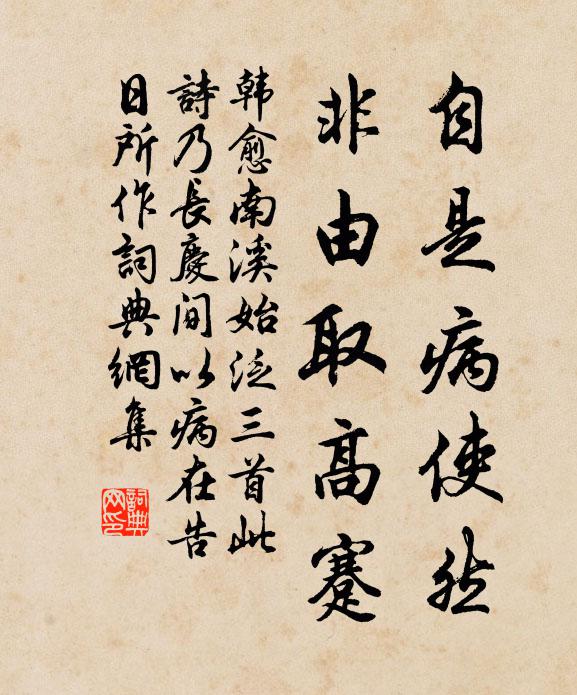 自是病使然
非由取高蹇
韩愈南溪始泛三首此
詩乃長慶間以病在告
日所作詞典網集
詞典網印